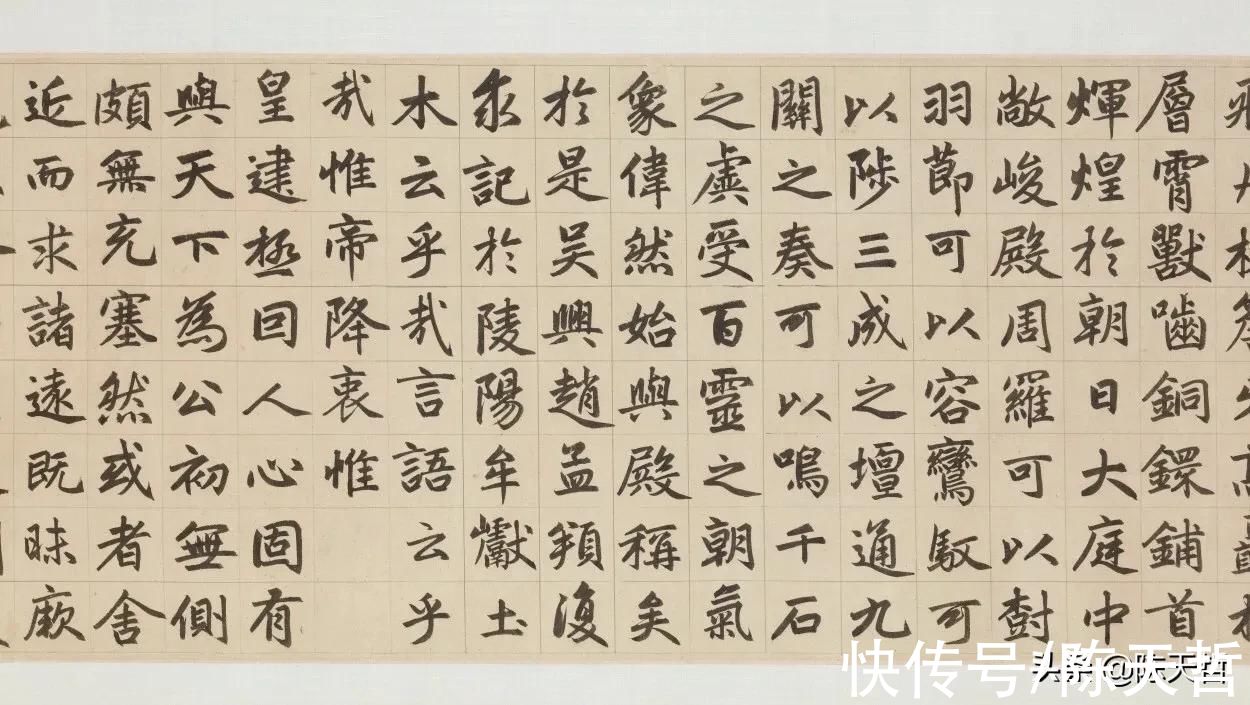 層霄獸嚙銅鐶鋪首
輝煌於朝日大庭中
敞峻殿周羅可以樹
羽節可以容鸞馭可
以陟三成之壇通九
關之奏可以鳴千石
之虡受百靈之朝氣
象偉然始與殿稱矣
於是吳興趙孟頫復
求記於陵陽牟巘土
木云乎哉言語云乎
哉惟帝降衷惟
皇建極回人心固有
與天下為公初無側
頗無充塞然或者舍
近而求諸遠既昧厥
快传号/陈天哲
头条 @陈天哲